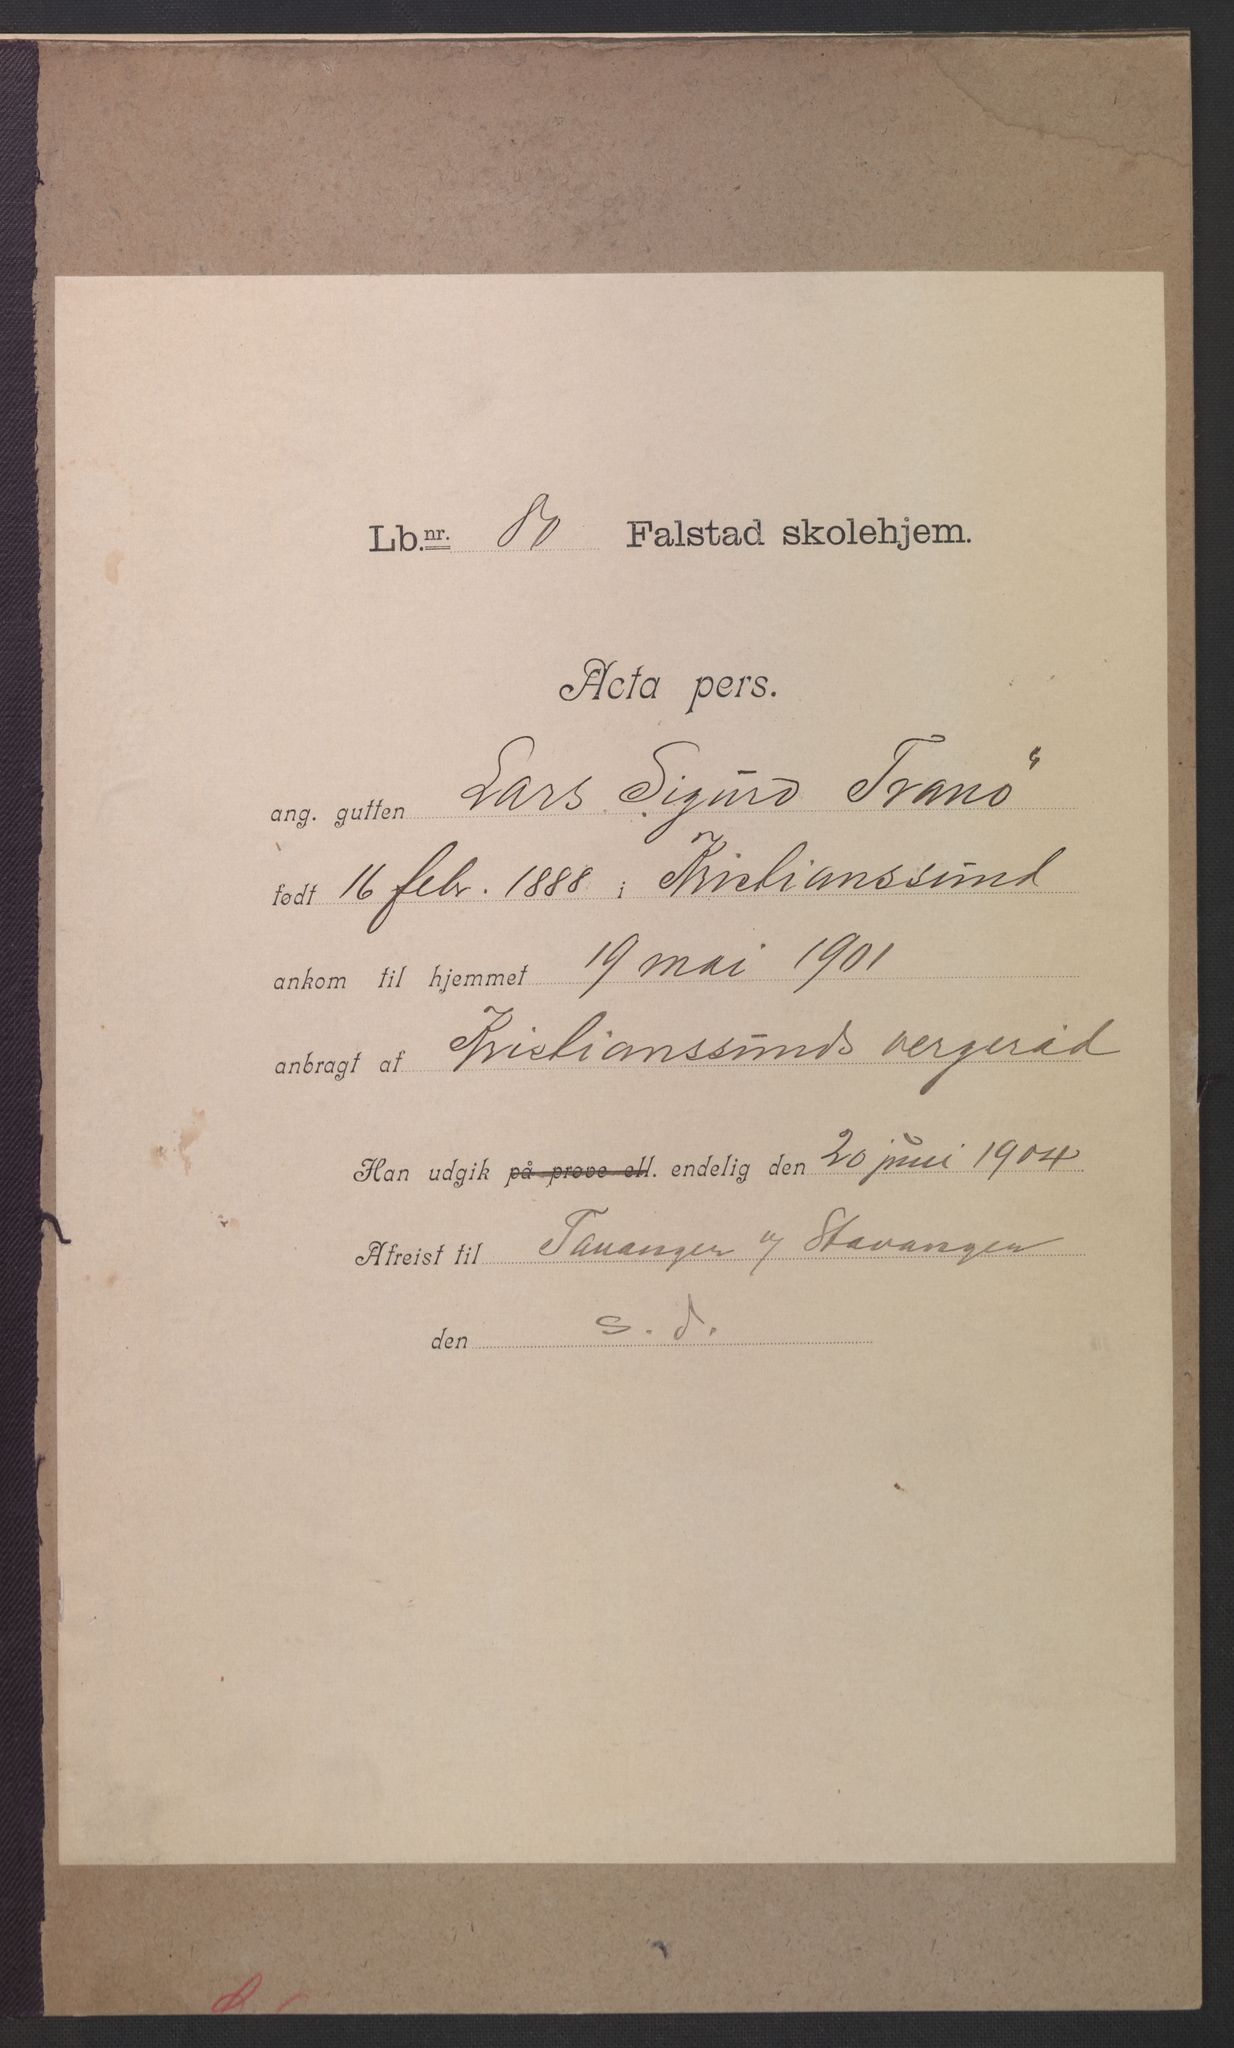 Lb.nr. 80 Falstad skolehjem.
Acta pers.
ang. gutten Lars Sigurd Tranö
født 16 febr. 1888 i Kristianssund
ankom til hjemmet 19 mai 1901
anbragt af Kristianssunds vergeråd
Han udgik på prøve ell. endelig den 20 juni 1904
Afreist til Tananger v/ Stavanger
den s. d.